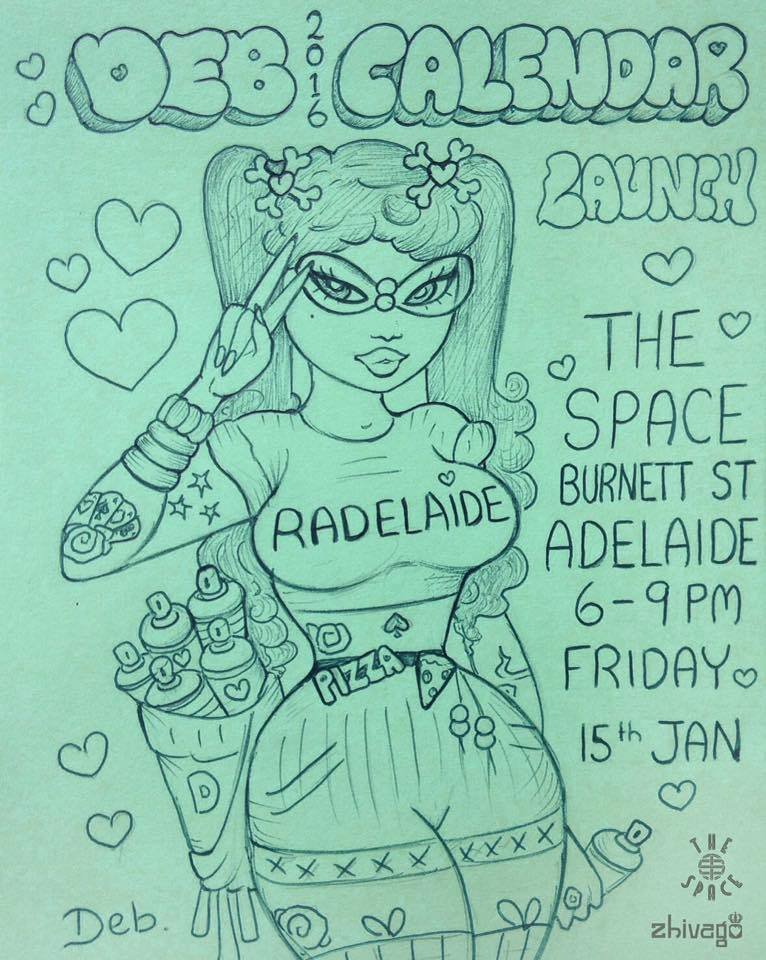 DEB 2016 CALENDAR
LAUNCH
THE
SPACE
BURNETT ST
ADELAIDE
6-9 PM
FRIDAY
15th JAN
RADELAIDE
PIZZA
D
Deb.
THE
SPACE
zhivago